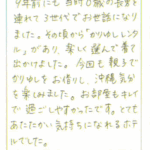 9年前にも、当時0歳の長男を
連れて3世代でお世話になり
ました。その頃から「かりゆしレン
タル」があり、楽しく選んで着て
出かけました。今回も親子で
かりゆしをお借りし、沖縄気分
を楽しみました。お部屋もキレイ
で過ごしやすかったです。とても
あたたかい気持ちになれるホテ
ルでした。